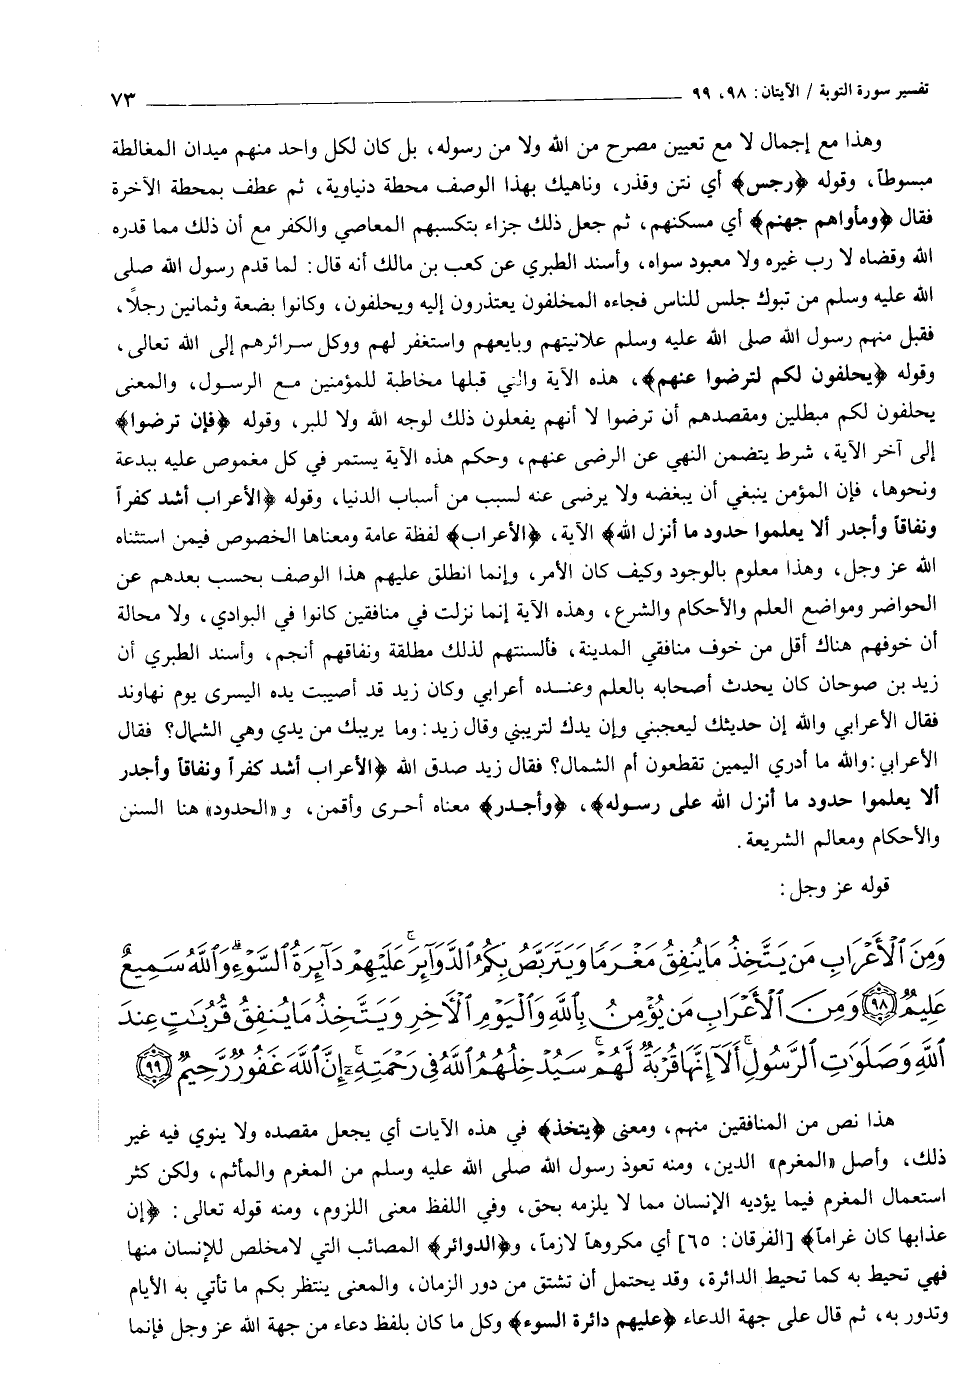 تفسير سورة التوبة / الآيتان: ٩٨، ٩٩ ــــــــــــــــــــ ٧٣
وهذا مع إجمال لا مع تعيين مصرح من الله ولا من رسوله، بل كان لكل واحد منهم ميدان المغالطة
مبسوطاً، وقوله ﴿رجس﴾ أي نتن وقذر، وناهيك بهذا الوصف محطة دنياوية، ثم عطف بمحطة الآخرة
فقال ﴿ومأواهم جهنم﴾ أي مسكنهم، ثم جعل ذلك جزاء بتكسبهم المعاصي والكفر مع أن ذلك مما قدره
الله وقضاه لا رب غيره ولا معبود سواه، وأسند الطبري عن كعب بن مالك أنه قال: لما قدم رسول الله صلى
الله عليه وسلم من تبوك جلس للناس فجاءه المخلفون يعتذرون إليه ويحلفون، وكانوا بضعة وثمانين رجلاً،
فقبل منهم رسول الله صلى الله عليه وسلم علانيتهم وبايعهم واستغفر لهم ووكل سرائرهم إلى الله تعالى،
وقوله ﴿يحلفون لكم لترضوا عنهم﴾، هذه الآية والتي قبلها مخاطبة للمؤمنين مع الرسول، والمعنى
يحلفون لكم مبطلين ومقصدهم أن ترضوا لا أنهم يفعلون ذلك لوجه الله ولا للبر، وقوله ﴿فإن ترضوا﴾
إلى آخر الآية، شرط يتضمن النهي عن الرضى عنهم، وحكم هذه الآية يستمر في كل مغموص عليه ببدعة
ونحوها، فإن المؤمن ينبغي أن يبغضه ولا يرضى عنه لسبب من أسباب الدنيا، وقوله ﴿الأعراب أشد كفراً
ونفاقاً وأجدر ألا يعلموا حدود ما أنزل الله﴾ الآية، ﴿الأعراب﴾ لفظة عامة ومعناها الخصوص فيمن استثناه
الله عز وجل، وهذا معلوم بالوجود وكيف كان الأمر، وإنما انطلق عليهم هذا الوصف بحسب بعدهم عن
الحواضر ومواضع العلم والأحكام والشرع، وهذه الآية إنما نزلت في منافقين كانوا في البوادي، ولا محالة
أن خوفهم هناك أقل من خوف منافقي المدينة، فألسنتهم لذلك مطلقة ونفاقهم أنجم، وأسند الطبري أن
زيد بن صوحان كان يحدث أصحابه بالعلم وعنده أعرابي وكان زيد قد أصيبت يده اليسرى يوم نهاوند
فقال الأعرابي والله إن حديثك ليعجبني وإن يدك لتريبني وقال زيد: وما يريبك من يدي وهي الشمال؟ فقال
الأعرابي: والله ما أدري اليمين تقطعون أم الشمال؟ فقال زيد صدق الله ﴿الأعراب أشد كفراً ونفاقاً وأجدر
ألا يعلموا حدود ما أنزل الله على رسوله﴾، ﴿وأجدر﴾ معناه أحرى وأقمن، و«الحدود» هنا السنن
والأحكام ومعالم الشريعة.
قوله عز وجل:
وَمِنَ ٱلْأَعْرَابِ مَن يَتَّخِذُ مَا يُنفِقُ مَغْرَمًا وَيَتَرَبَّصُ بِكُمُ ٱلدَّوَآئِرَ ۚ عَلَيْهِمْ دَآئِرَةُ ٱلسَّوْءِ ۗ وَٱللَّهُ سَمِيعٌ
عَلِيمٌ ﴿٩٨﴾ وَمِنَ ٱلْأَعْرَابِ مَن يُؤْمِنُ بِٱللَّهِ وَٱلْيَوْمِ ٱلْآخِرِ وَيَتَّخِذُ مَا يُنفِقُ قُرُبَٰتٍ عِندَ
ٱللَّهِ وَصَلَوَٰتِ ٱلرَّسُولِ ۚ أَلَآ إِنَّهَا قُرْبَةٌ لَّهُمْ ۚ سَيُدْخِلُهُمُ ٱللَّهُ فِى رَحْمَتِهِۦٓ ۗ إِنَّ ٱللَّهَ غَفُورٌ رَّحِيمٌ ﴿٩٩﴾
هذا نص من المنافقين منهم، ومعنى ﴿يتخذ﴾ في هذه الآيات أي يجعل مقصده ولا ينوي فيه غير
ذلك، وأصل «المغرم» الدين، ومنه تعوذ رسول الله صلى الله عليه وسلم من المغرم والمأثم، ولكن كثر
استعمال المغرم فيما يؤديه الإنسان مما لا يلزمه بحق، وفي اللفظ معنى اللزوم، ومنه قوله تعالى: ﴿إن
عذابها كان غراماً﴾ [الفرقان: ٦٥] أي مكروهاً لازماً، و﴿الدوائر﴾ المصائب التي لامخلص للإنسان منها
فهي تحيط به كما تحيط الدائرة، وقد يحتمل أن تشتق من دور الزمان، والمعنى ينتظر بكم ما تأتي به الأيام
وتدور به، ثم قال على جهة الدعاء ﴿عليهم دائرة السوء﴾ وكل ما كان بلفظ دعاء من جهة الله عز وجل فإنما